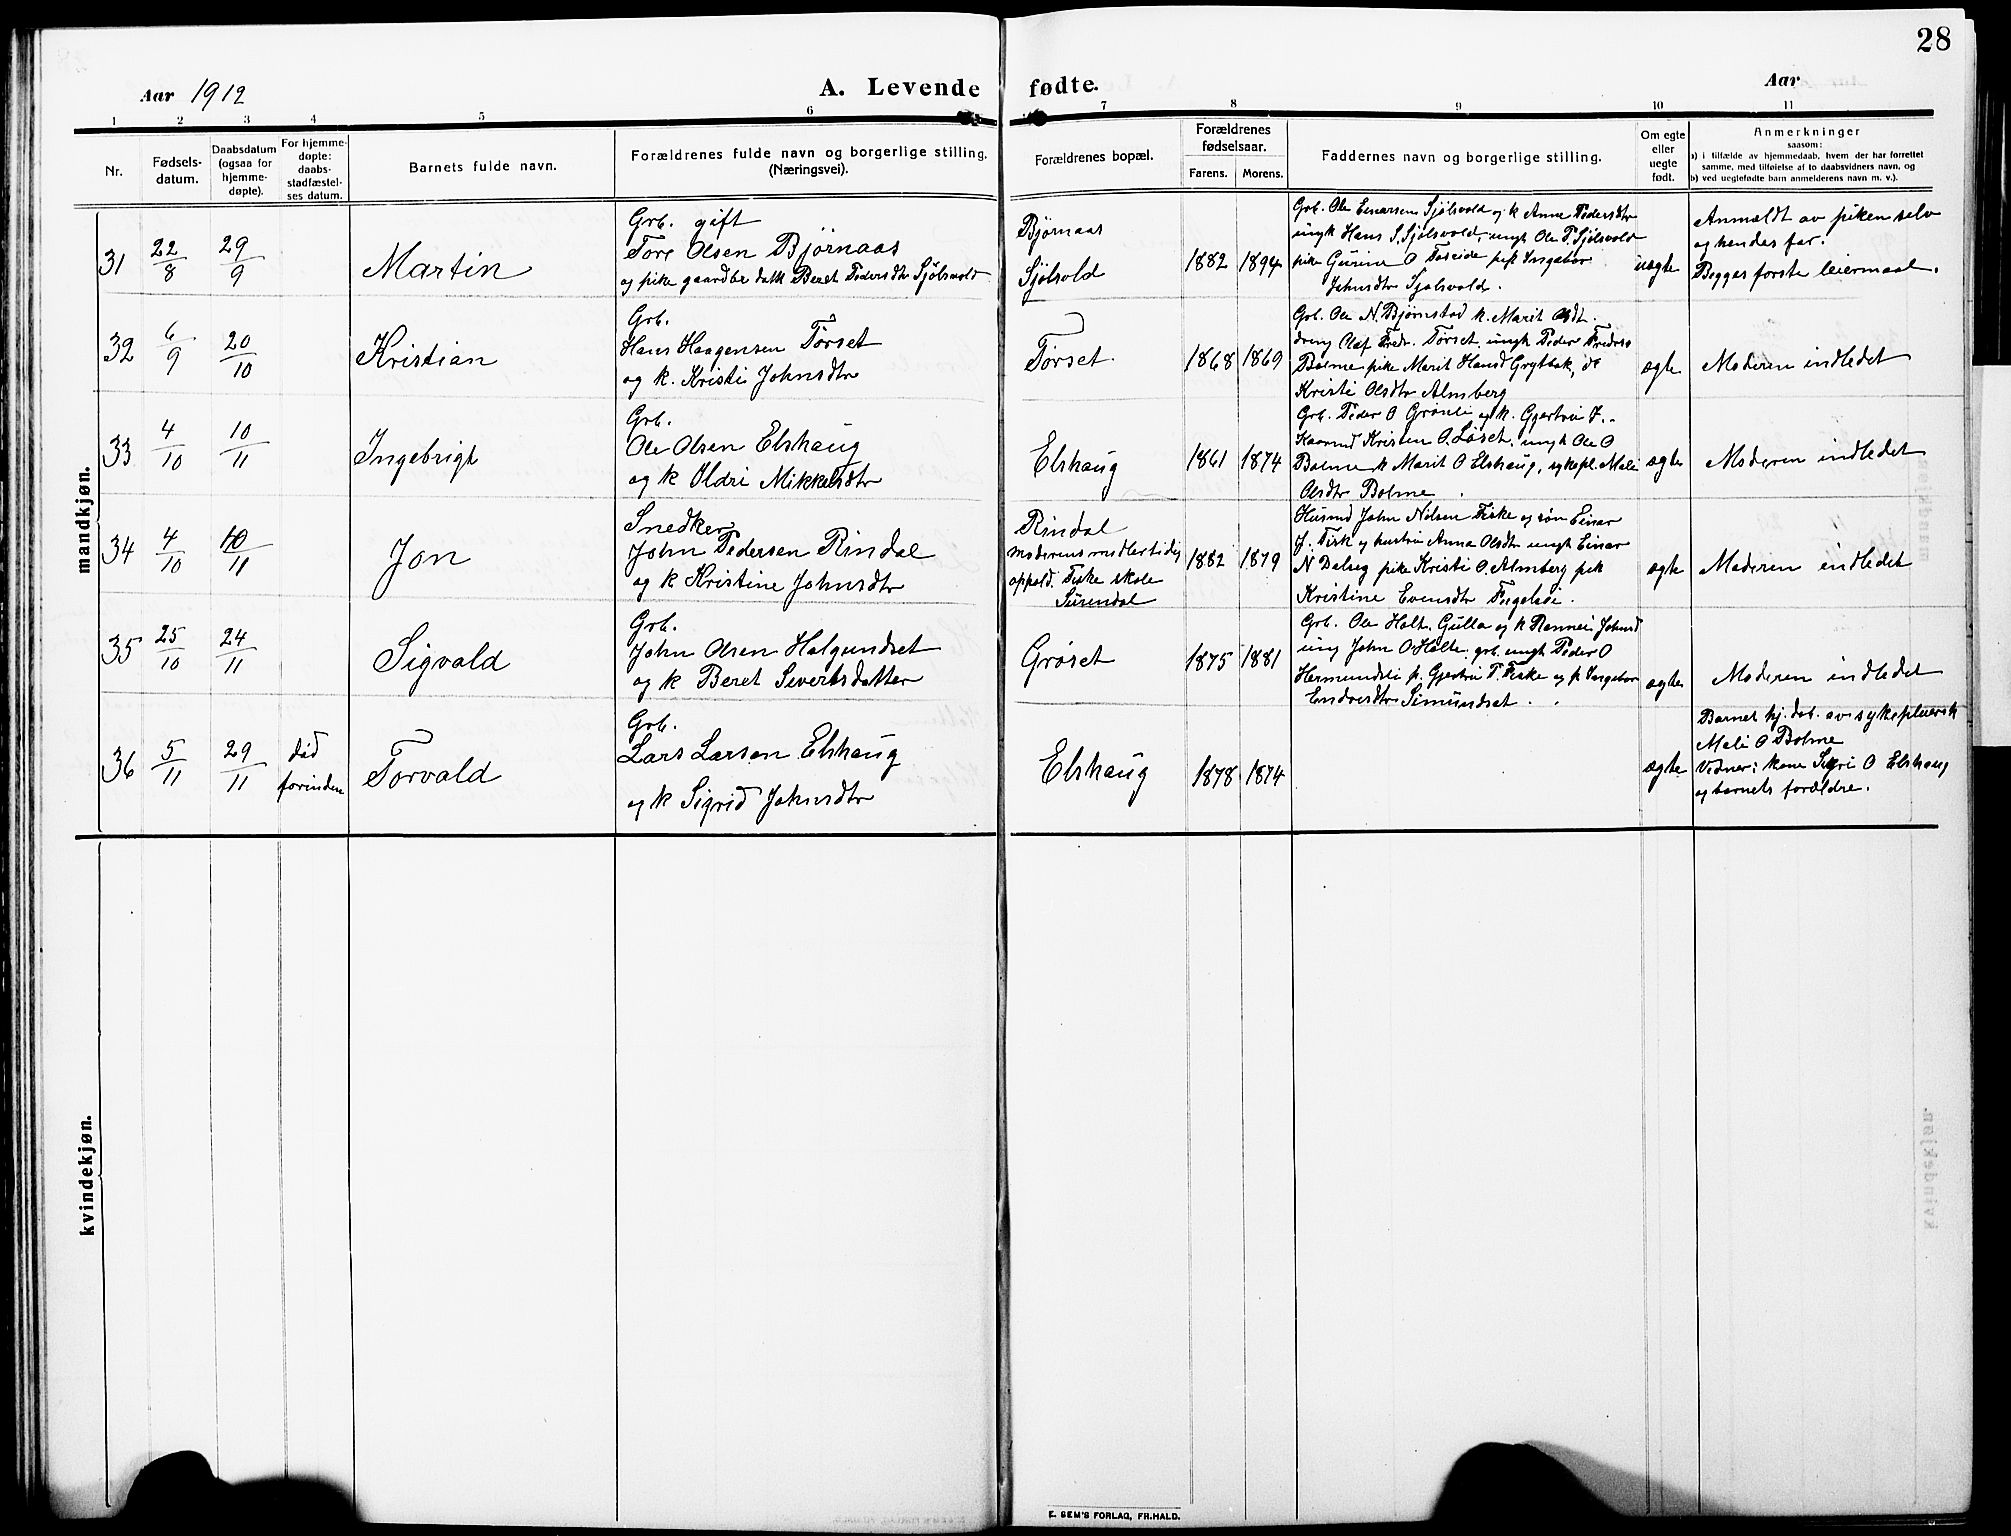 28
Aar 1912
A. Levende fødte.
Aar
1 2 3 4 5 6 7 8 9 10 11
Nr.
Fødsels-
datum.
Daabsdatum
(ogsaa for
hjemme-
døpte).
For hjemme-
døpte:
daabs-
stadfæstel-
ses datum.
Barnets fulde navn.
Forældrenes fulde navn og borgerlige stilling.
(Næringsvei).
Forældrenes bopæl.
Forældrenes
fødselsaar.
Farens. Morens.
Faddernes navn og borgerlige stilling.
Om egte
eller
uegte
født.
Anmerkninger
saasom:
a) i tilfælde av hjemmedaab, hvem der har forrettet
samme, med tilføielse af to daabsvidners navn, og
b) ved uegtefødte barn anmelderens navn m. v.).
mandkjøn.
31 22/8 29/9 Martin
Grb. gift
Tore Olsen Bjørnaas
og pike gaardbr datt Beret Pedersdtr Sjølsvold
Bjørnaas
Sjølsvold
1882 1894
Grb. Ole Einarsen Sjølsvold og k Anne Pedersdtr
ungk Hans S. Sjølsvold, ungk Ole P. Sjølsvold
pike Gurine O pik Ingebor
Johnsdtr Sjølsvold.
uægte
Anmeldt av piken selv
og hendes far.
Begges første leiermaal.
32 6/9 20/10 Kristian
Grb.
Hans Haagensen Tørset
og k. Kristi Johnsdtr
Tørset
1868 1869
Grb. Ole N. Bjørnstad k. Marit Olsdt.
dreng Olaf Fredr. Tørset, ungk Peder Freders
Bolme pike Marit Hansd Grytbak, do
Kristi Olsdtr Almberg
ægte
Moderen indledet
33 4/10 10/11 Ingebrigt
Grb.
Ole Olsen Elshaug
og k Oldri Mikkelsdtr
Elshaug
1861 1874
Grb. Peder O Grønli og k. Gjertrui J.
Kaarmd Kristen O. Løset, ungk Ole O
Bolme k Marit O Elshaug, sykepl. Mali
Olsdtr Bolme.
ægte
Moderen indledet
34 4/10 10/11 Jon
Snedker
John Pedersen Rindal
og k Kristine Johnsdtr
Rindal
moderens midlertidig
oppold. Fiske skole
Surendal
1882 1879
Husmd John Nilsen Fiske og søn Einar
J. Fisk og hustru Anna Olsdtr ungk Einar
N Dalseg pike Kristi O. Almberg pik
Kristine Evensdtr
ægte
Moderen indledet
35 25/10 24/11 Sigvald
Grb.
John Olsen Halgundset
og k Beret Sivertsdatter
Grøset
1875 1881
Grb. Ole Halt. Gulla og k Rannei Johnsd
ung John O Holte, grb. ungk Peder O
Hermundsli p. Gjertru T. Fiske og p Ingebor
Endresdtr Simundset.
ægte
Moderen indledet
36 5/11 29/11 død
forinden
Torvald
Grb.
Lars Larsen Elshaug
og k Sigrid Johnsdtr
Elshaug
1878 1874
ægte
Barnet hj. døt. av sykepleiersk
Mali O Bolme
Vidner: kone Sigri O Elshaug
og barnets forældre.
kvindekjøn.
E. SEM'S FORLAG, FR.HALD.